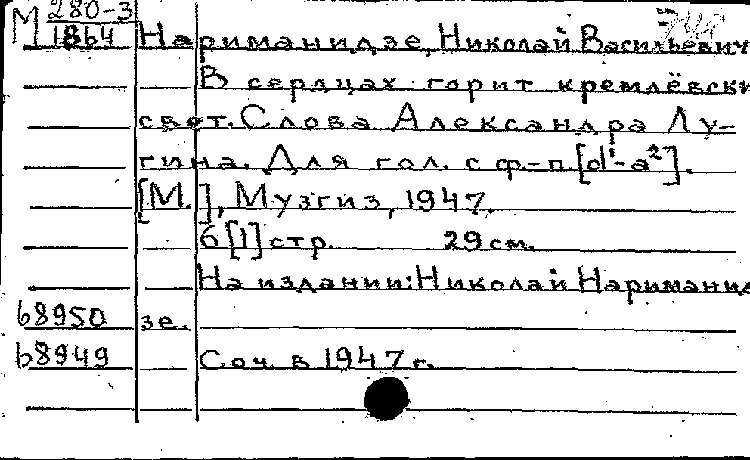 М 280-3
1864
Нариманидзе, Николай Васильевич
В сердцах горит кремлёвски
свет. Слова Александра Лу-
гина. Для гол. с ф-п [d¹-a²].
[М.], Музгиз, 1947.
6 [1] стр. 29 см.
На издании: Николай Наримани
68950 зе.
68949 Соч. в 1947 г.